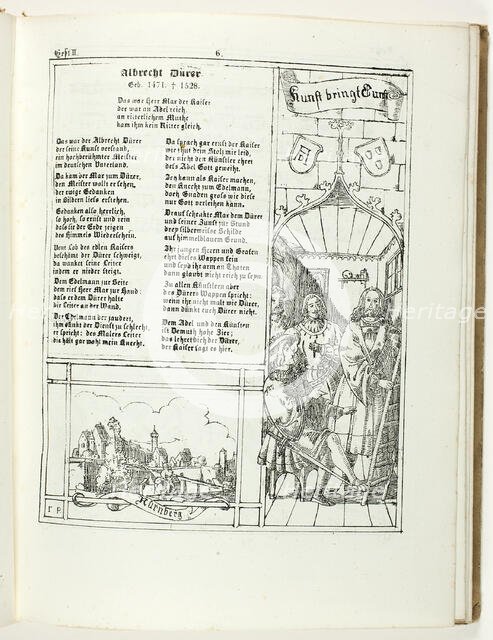 Heft II.
6.
Albrecht Dürer
Geb. 1471. † 1528.
Das war Herr Max der Kaiser
der war an Adel reich,
an ritterlichem Muthe
kam ihm kein Ritter gleich.
Das war der Albrecht Dürer
der seine Kunst verstand,
ein hochberühmter Meister
im deutschen Vaterland.
Da kam der Max zum Dürer,
den Meister wollt er sehen,
der ewige Gedanken
in Bildern liess erstehen.
Gedanken also herrlich,
so hoch, so ernst und rein
dass sie der Erde zeigen
des Himmels Wiederschein.
Vom Lob des edlen Kaisers
beschämt der Dürer schweigt,
da wanket seine Leiter
indem er nieder steigt.
Dem Edelmann zur Seite
dem rief Herr Max zur Hand:
dass er dem Dürer halte
die Leiter an der Wand.
Der Edelmann der zaudert,
ihm dünkt der Dienst zu schlecht,
er spricht: des Malers Leiter
die hält gar wohl mein Knecht.
Da sprach gar ernst der Kaiser
wie thut dein Stolz mir leid,
der nicht den Künstler ehret
des Adel Gott geweiht.
Ich kann als Kaiser machen,
den Knecht zum Edelmann,
doch Gnaden gross wie diese
nur Gott verleihen kann.
Drauf schenkte Max dem Dürer
und seiner Zunft zur Stund
drey silberweisse Schilde
auf himmelblauem Grund.
Ihr jungen Herrn und Grafen
ehrt dieses Wappen fein
und seyd ihr arm an Thaten
dann glaubt nicht reich zu seyn.
Zu allen Künstlern aber
des Dürers Wappen spricht:
wenn ihr nicht malt wie Dürer,
dann dünkt euch Dürer nicht.
Dem Adel und den Künsten
ist Demuth hohe Zier;
das lehret dich der Dürer,
der Kaiser sagt es hier.
Kunst bringt Gunst
Nürnberg
F P.
heritage